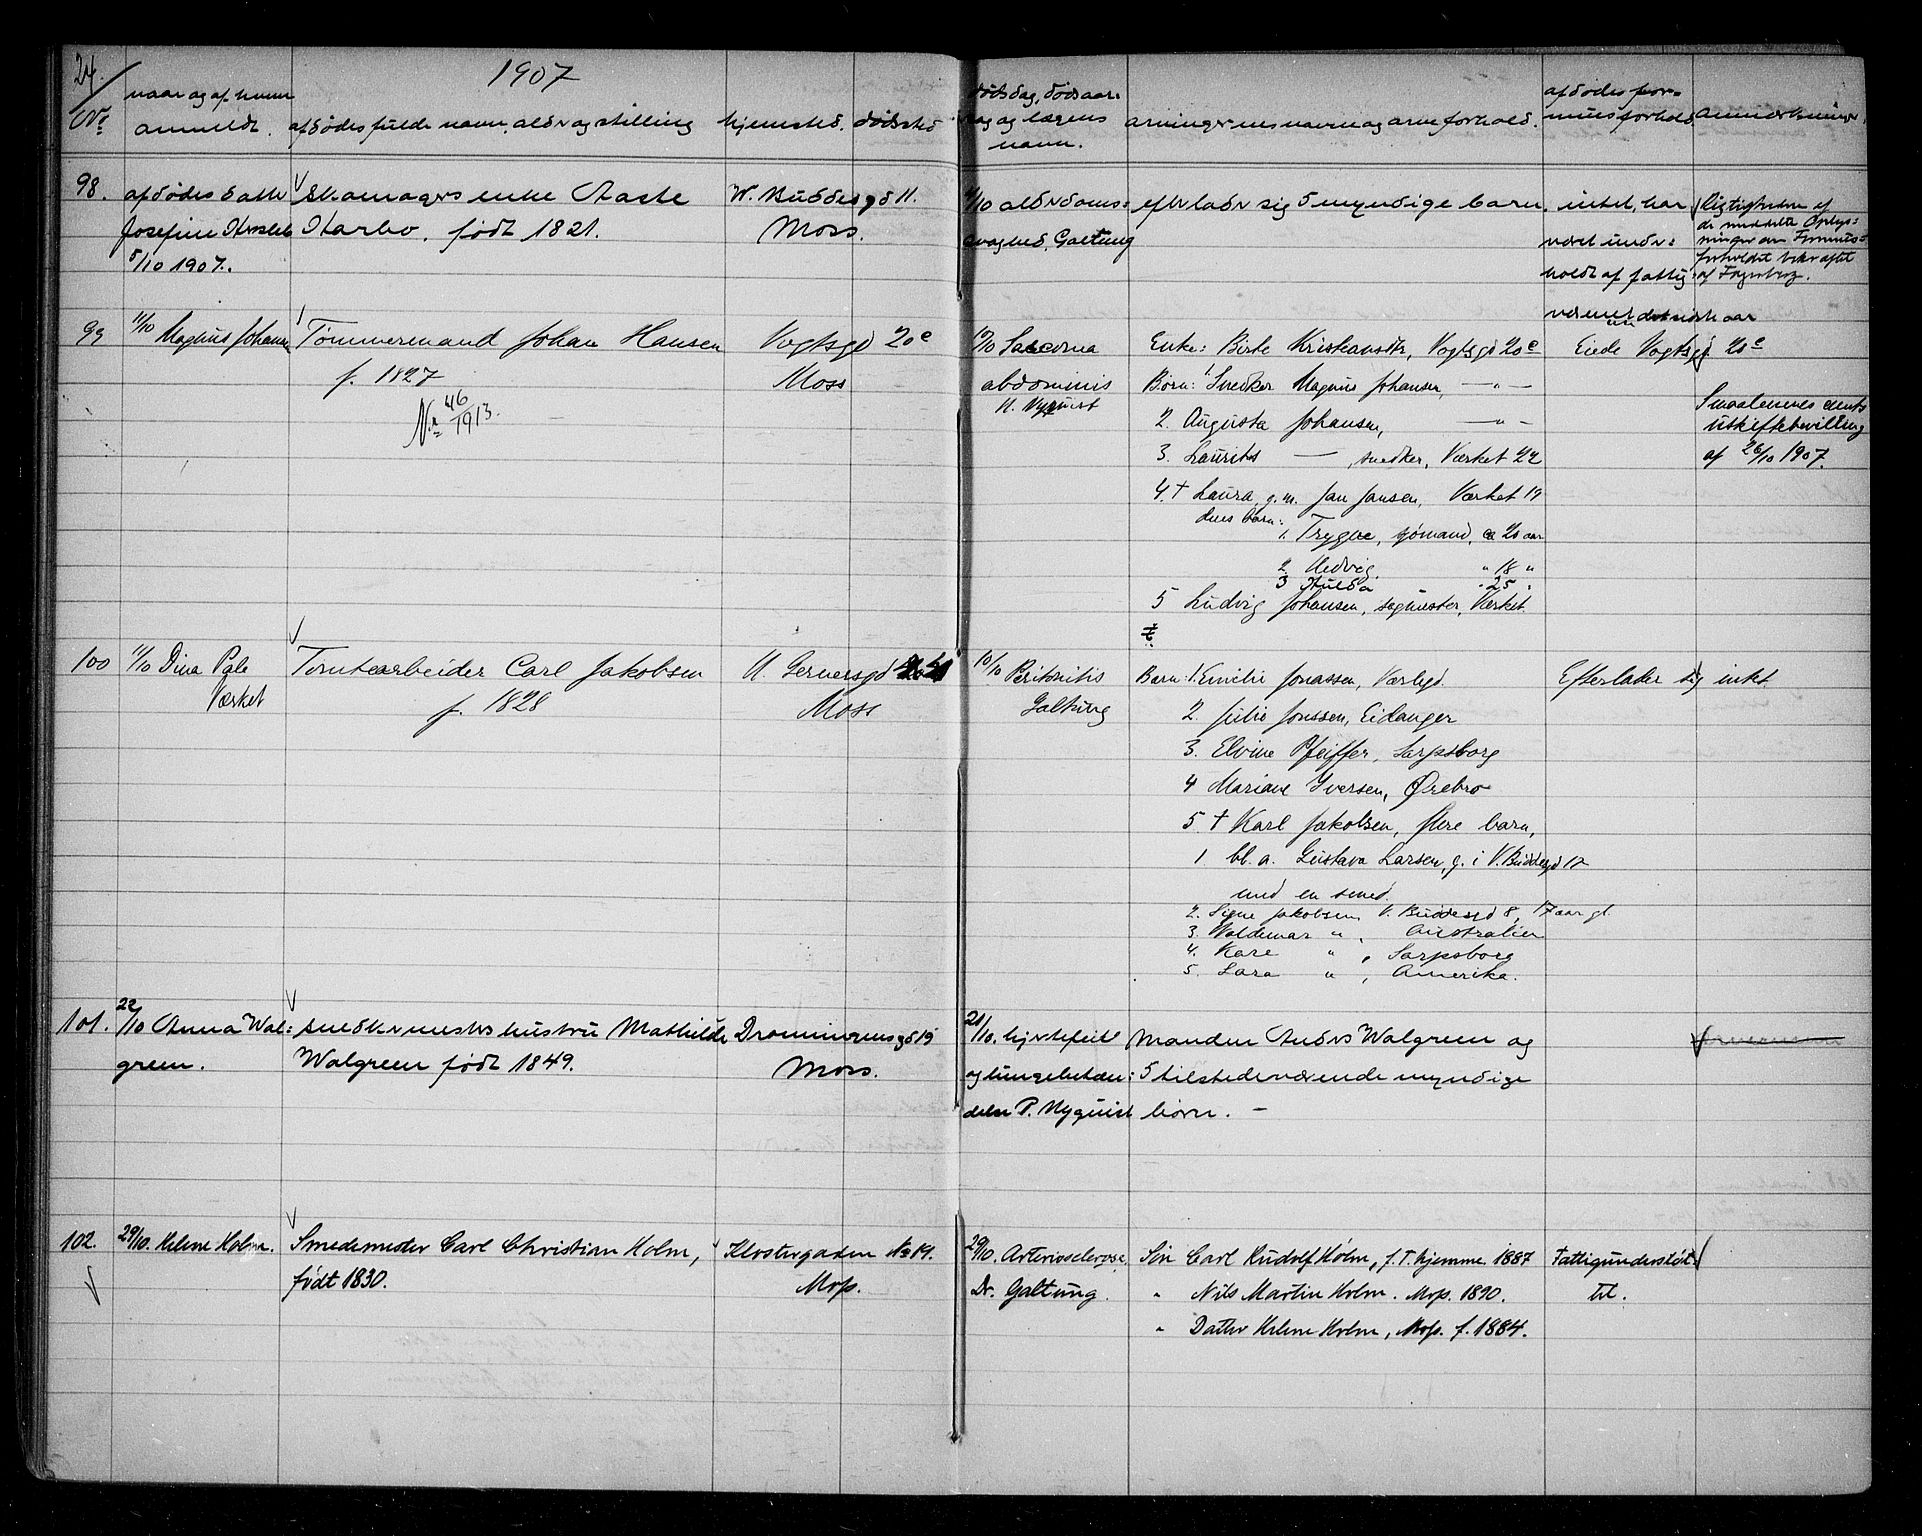 24.
1907
Nr.
naar og af hvem
anmeldt.
afdødes fulde navn, alder og stilling
hjemsted. dødssted
dødsdag, dødsaar:
sag og lægens
navn.
arvingernes navn og arveforhold.
afdødes for-
muesforhold.
anmærkninger.
98.
afdødes datter
Josefine
5/10 1907.
Skomagers enke Aaste
Harbo. født 1821.
W. Buddes gd 11.
Moss.
4/10 alderdoms:
svaghed. Galtung
efterlader sig 5 myndige barn.
intet, har
været under:
holdt af fattig:
væsenet
Rigtigheden af
de meddelte Oplys:
ninger om Formues:
forholdet bekræftet
af Fagerberg.
99
11/10 Magnus Johansen
Tømmermand Johan Hansen
f. 1827
Nr. 46/1913.
Vogtsgd 20c
Moss
Sarcoma
abdominis
N. Nyquist
Enke: Birte Kristiansdtr, Vogtsgd 20c
Børn: 1. Snedker Magnus Johansen, — " —
2. Augusta Johansen, — " —
3. Laurits — , snedker, Værket 22
4. † Laura, g. m. Jan Jansen, Værket 19
dennes barn:
1. Trygve, sjømand, ca 20 aar
2. Hedvig " 18 "
3 Hulda " 25 "
5 Ludvig Johansen, sagmester, Værket.
Eiede Vogtsgd 20c
Smaalenenes amts
uskiftebevilling
af 26/10 1907.
100
11/10 Dina Pale
Værket
Tomtearbeider Carl Jakobsen
f. 1828
N. Gernersgd
Moss
10/10 Peritonitis
Galtung
Barn: 1. Emilie Jonassen, Værlegd.
2. Julie Jonssen, Eidanger
3. Elvine Pfeiffer, Sarpsborg
4 Mariane Iversen, Ørebro
5. † Karl Jakobsen, flere barn,
1. bl. a. Gustava Larsen, g. i V. Buddesgd 12
med en smed.
2. Signe Jakobsen, V. Buddesgd 8, 17 aar gl.
3. Valdemar " , Australien
4. Kare " , Sarpsborg
5. Lara " , Amerika.
Efterlader sig intet
101.
22/10 Anna Wal:
green.
snedkermesters hustru Mathilde
Walgreen født 1849.
Dronningens gd 19
Moss.
21/10. hjertefeil
og lungebetæn:
delse P. Nyquist
Manden Anders Walgreen og
5 tilstedeværende myndige
børn. —
102.
29/10. Helene Holm.
Smedemester Carl Christian Holm,
født 1830.
Klostergaden No 19.
Moss.
29/10. Arteriosclerose.
Dr. Galtung.
Søn Carl Rudolf Holm, f. T. hjemme. 1887
" Nils Martin Holm. Moss. 1890.
" Datter Helene Holm, Moss. f. 1884.
Fattigunderstøt:
tet.